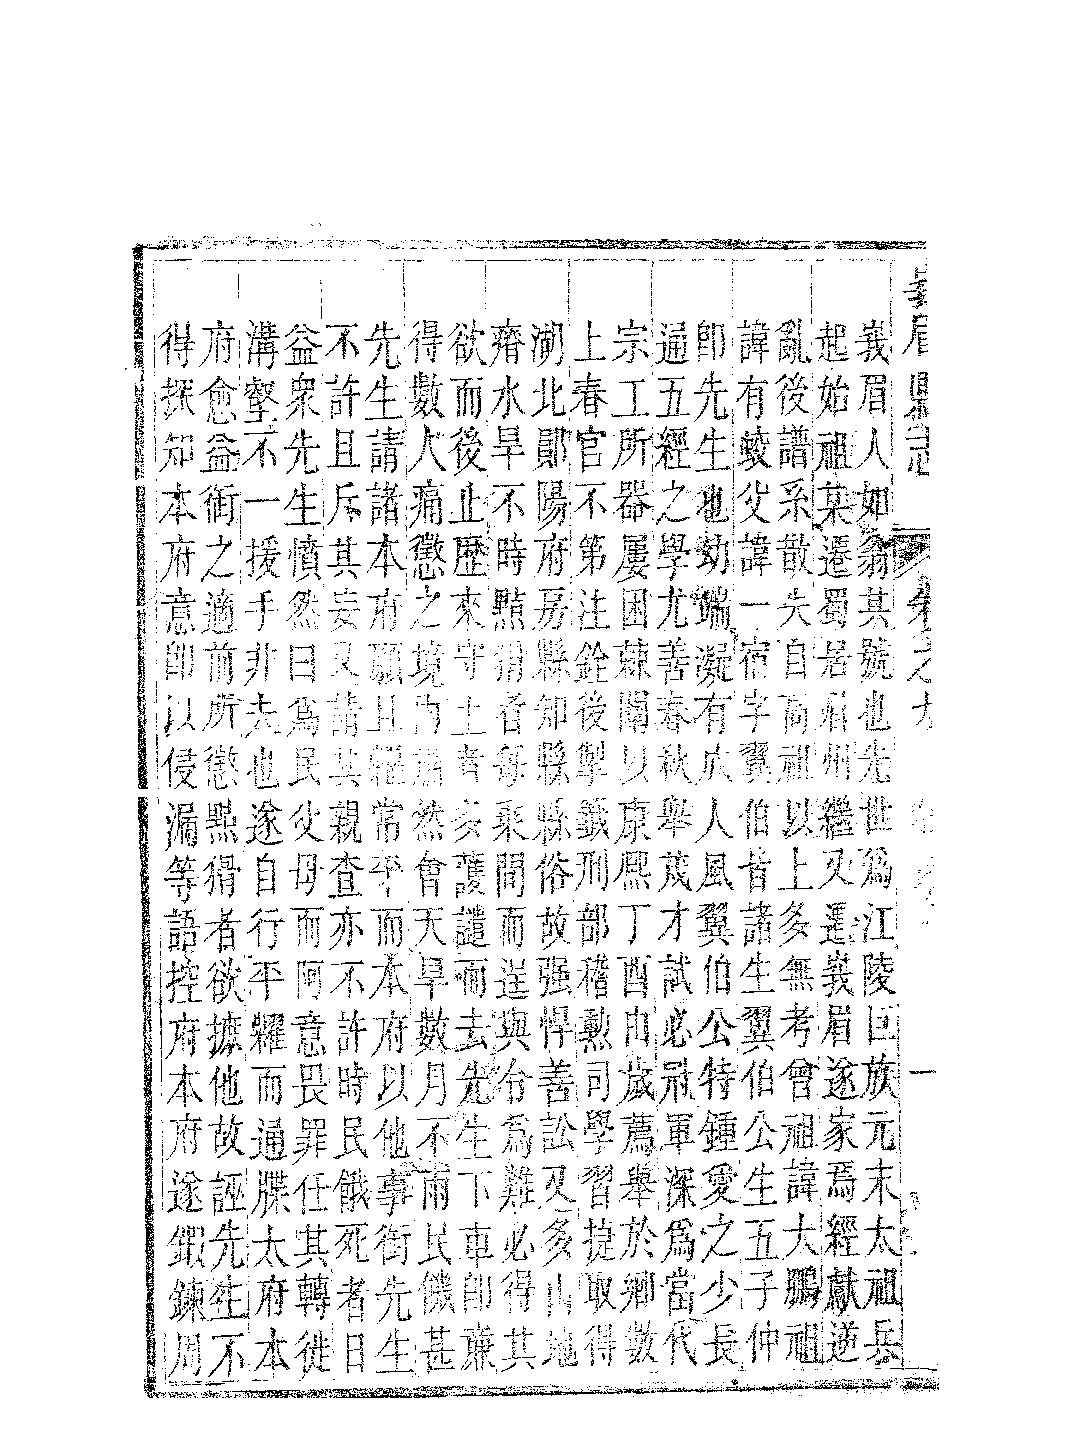 峩眉縣志 卷之九 一
峩眉人如翁其號也先世爲江陵巨族元末太祖兵
起始祖某遷蜀居眉州繼又遷峩眉遂家焉經獻逆
亂後譜系散失自高祖以上多無考曾祖諱大鵬祖
諱有崚父諱一宿字翼伯皆諸生翼伯公生五子仲
卽先生也幼端凝有成人風翼伯公特鍾愛之少長
通五經之學尤善春秋舉茂才試必冠軍深爲當代
宗工所器屢困棘闈以康熙丁酉由歲薦舉於鄉數
上春官不第注銓後掣籖刑部稽勲司學習捷取得
湖北鄖陽府房縣知縣縣俗故强悍善訟又多山地
瘠水旱不時黠猾者每乘間而逞與令爲難必得其
欲而後止歷來守土者多護譴而去先生下車卽廉
得數人痛懲之境內肅然會天旱數月不雨民饑甚
先生請諸本府願且糶常平而本府以他事銜先生
不許且斥其妄又請其親查亦不許時民餓死者日
益衆先生憤然曰爲民父母而阿意畏罪任其轉徙
溝壑不一援手非夫也遂自行平糶而通牒太府本
府愈益銜之適前所懲黠猾者欲摭他故誣先生不
得探知本府意卽以侵漏等語控府本府遂鍜鍊周